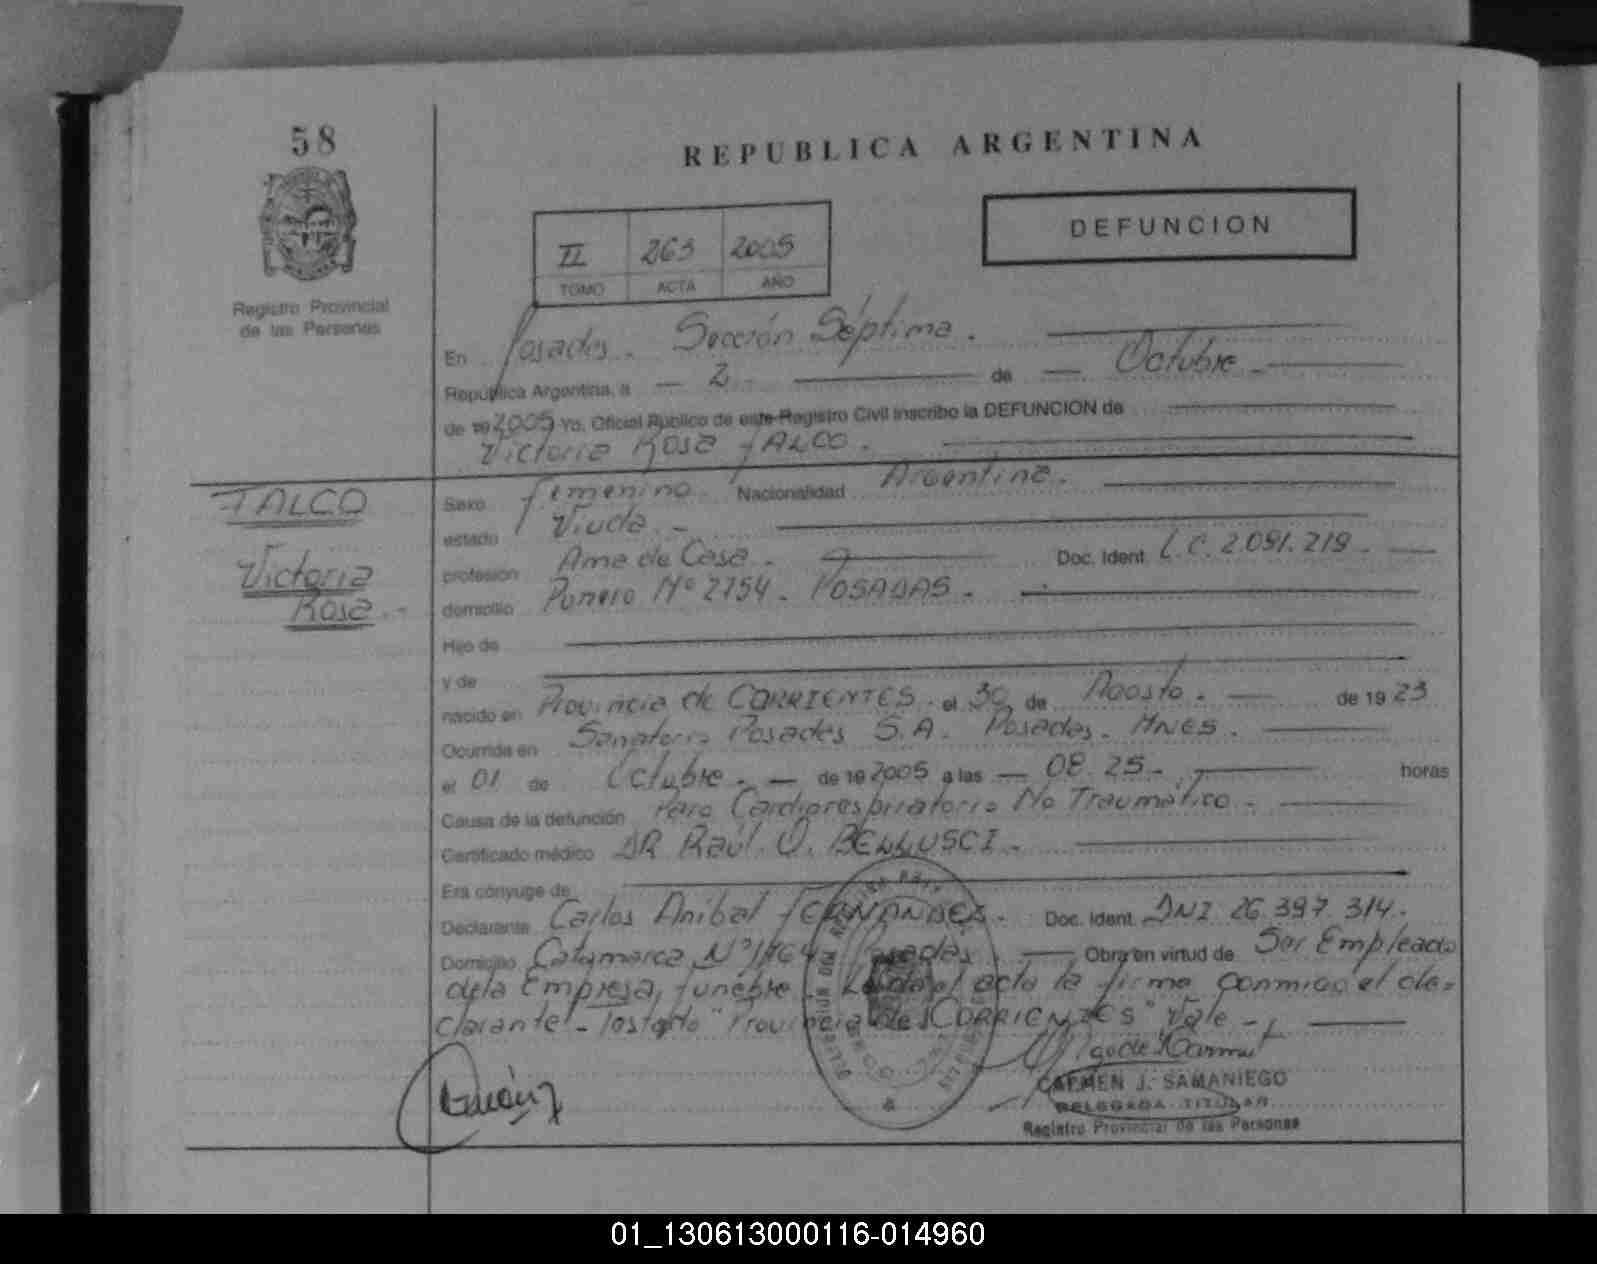 58
REPUBLICA ARGENTINA
DEFUNCION
II 263 2005
TOMO ACTA AÑO
Registro Provincial
de las Personas
En Posadas. Sección Séptima.
República Argentina, a 2 de Octubre
de 19 2005 Yo, Oficial Público de este Registro Civil inscribo la DEFUNCION de
Victoria Rosa TALCO.
TALCO
Victoria
Rosa.-
Sexo Femenino Nacionalidad Argentina.
estado Viuda.-
profesión Ama de Casa. Doc. Ident. L.C. 2.091.219.
domicilio Nº 2754. POSADAS.
Hijo de
y de
nacido en Provincia de CORRIENTES. el 30 de Agosto. de 19 23
Ocurrida en Sanatorio Posadas S.A. Posadas. MNES.
el 01 de Octubre. de 19 2005 a las 08.25. horas
Causa de la defunción Paro Cardiorespiratorio No Traumático.
Certificado médico DR Raúl O. BELLUSCI.
Era cónyuge de
Declarante Carlos Anibal FERNANDEZ. Doc. Ident. DNI 26.397.314.
Domicilio Catamarca Nº Posadas. Obra en virtud de Ser Empleado
de la Empresa funebre. Leída el acta la firma conmigo el de=
clarante.- Testado "Provincia de CORRIENTES" Vale.-
CARMEN J. SAMANIEGO
DELEGADA TITULAR
Registro Provincial de las Personas
01_130613000116-014960